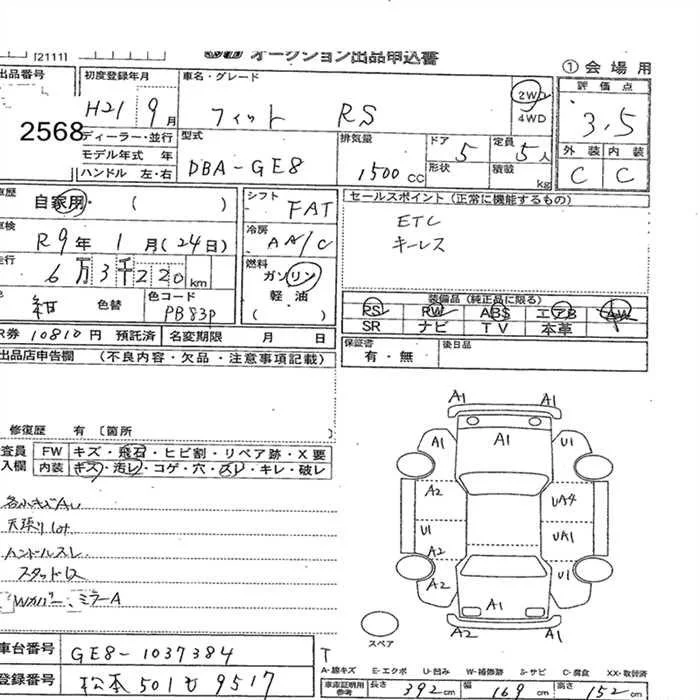 [2111]
オークション出品申込書
① 会場用
出品番号
2568
初度登録年月
H21 9月
車名・グレード
フィット RS
2WD
4WD
評価点
3.5
外装 内装
C C
ディーラー・並行
モデル年式 年
ハンドル 左・右
型式
DBA-GE8
排気量
1500 CC
ドア 5
形状
定員 5人
積載 kg
車歴
自家用・( )
車検
R9年 1月(24日)
走行
6万3千220km
紺 色替
色コード
PB83P
シフト
FAT
冷房
AA/C
燃料
ガソリン
軽油
( )
セールスポイント(正常に機能するもの)
ETC
キーレス
装備品(純正品に限る)
PS PW ABS エアB AW
SR ナビ TV 本革
R券 10810円 預託済
名変期限 月 日
保証書
有・無
後日品
出品店申告欄 (不良内容・欠品・注意事項記載)
修復歴 有〔箇所
査員
入欄
FW キズ・飛石・ヒビ割・リペア跡・X要
内装 キズ・汚レ・コゲ・穴・スレ・キレ・破レ
天張り
ハンドルスレ
スタッドレス
Wカバー、ミラーA
A1
A1
A1
A1
U1
A2
UA4
U1
UA1
A2
A2
U1
A1
A2
A1
スペア
車台番号
GE8-1037384
登録番号
松本501も9517
A-線キズ E-エクボ U-凹み W-補修跡 S-サビ C-腐食 XX-取替済
車庫証明用
参考
長さ 392cm
幅 169cm
高さ 152cm